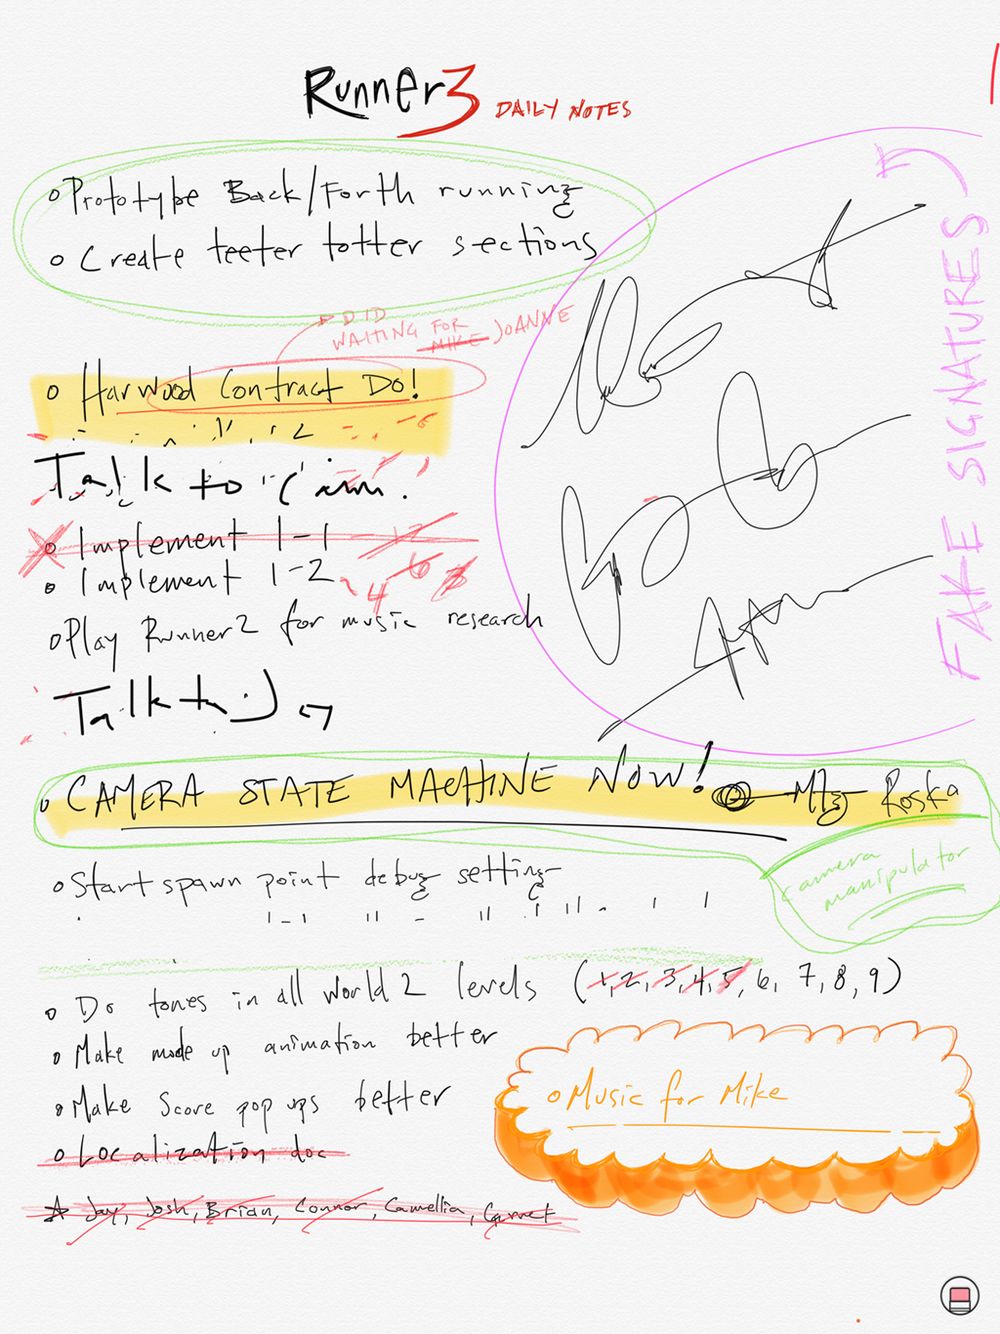 Runner3 DAILY NOTES
o Prototype Back/Forth running
o Create teeter totter sections
DID
WAITING FOR
MIKE JOANNE
o Harwood Contract Do!
Talk to
o Implement 1-1
o Implement 1-2
~4 6 3
o Play Runner2 for music research
Talk to
FAKE SIGNATURES
o CAMERA STATE MACHINE NOW! Roska
camera
manipulator
o Start spawn point debug setting
o Do tones in all world 2 levels (1, 2, 3, 4, 5, 6, 7, 8, 9)
o Make mode up animation better
o Make Score pop ups better
o Music for Mike
o Localization doc
☆ Jay, Josh, Brian, Connor, Camellia, Garret